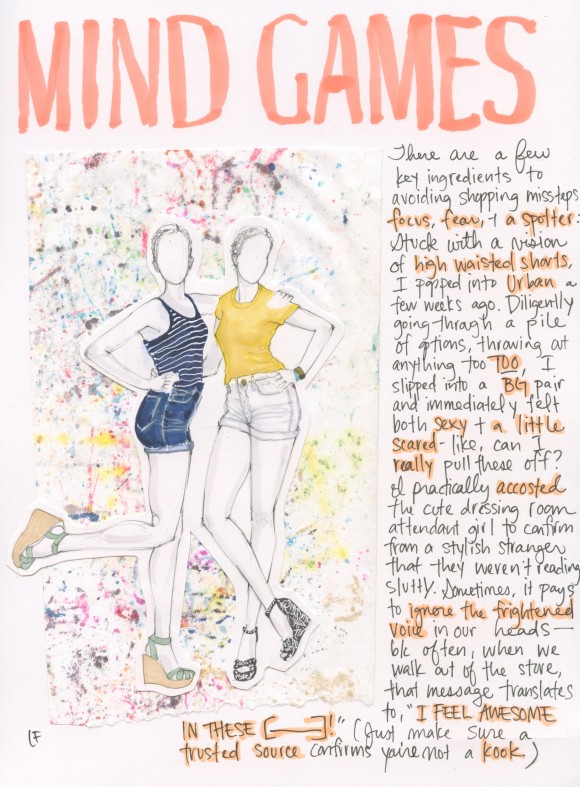 MIND GAMES
There are a few
key ingredients to
avoiding shopping missteps
focus, fear, + a spotter.
Stuck with a vision
of high waisted shorts,
I popped into Urban a
few weeks ago. Diligently
going through a pile
of options, throwing out
anything too TOO, I
slipped into a BG pair
and immediately felt
both sexy + a little
scared- like, can I
really pull these off?
I practically accosted
the cute dressing room
attendant girl to confirm
from a stylish stranger
that they weren't reading
slutty. Sometimes, it pays
to ignore the frightened
voice in our heads—
b/c often, when we
walk out of the store,
that message translates
to, "I FEEL AWESOME
IN THESE [___]!" (Just make sure a
trusted source confirms you're not a kook.)
LF